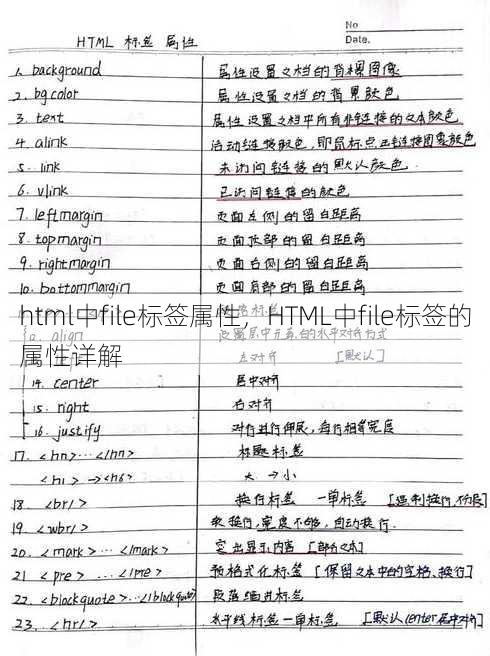 No
Date.
HTML 标签 属性
1. background 属性设置文档的背景图像
2. bgcolor 属性设置文档的背景颜色
3. text 属性设置文档中所有非链接的文本颜色
4. alink 活动链接颜色，即鼠标点击链接时的颜色
5. link 未访问链接的默认颜色.
6. vlink 已访问链接的颜色
7. leftmargin 页面左侧的留白距离
8. topmargin 页面顶部的留白距离
9. rightmargin 页面右侧的留白距离
10. bottommargin 页面底部的留白距离
html中file标签属性，HTML中file标签的
属性详解
align 设置层中元素的水平对齐方式
左对齐 [默认]
14. center 居中对齐
15. right 右对齐
16. justify 对行进行伸展，每行相等宽度
17. <hn>...</hn> 标题标签
<h1> → <h6> 大 → 小
18. <br/> 换行标签 一单标签 [强制换行,不分段]
19. <wbr/> 软换行,宽度不够，自动换行.
20. <mark>...</mark> 突出显示内容 [部分文本]
21. <pre>...</pre> 预格式化标签 [保留文本中的空格、换行]
22. <blockquote>...</blockquote> 段落缩进标签
23. <hr/> 水平线标签一单标签 [默认center居中对齐]